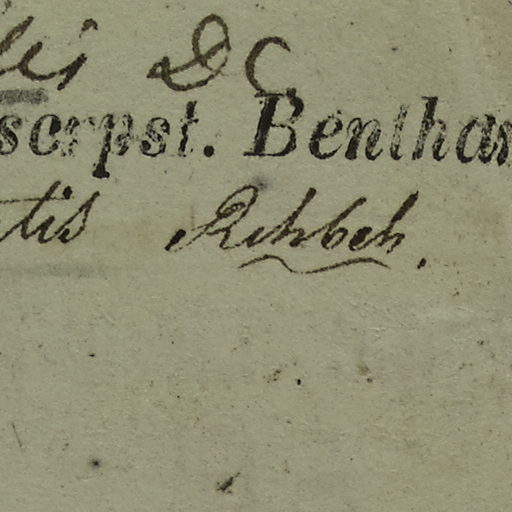 lis DC
scrpst. Bentham
tis Rchb